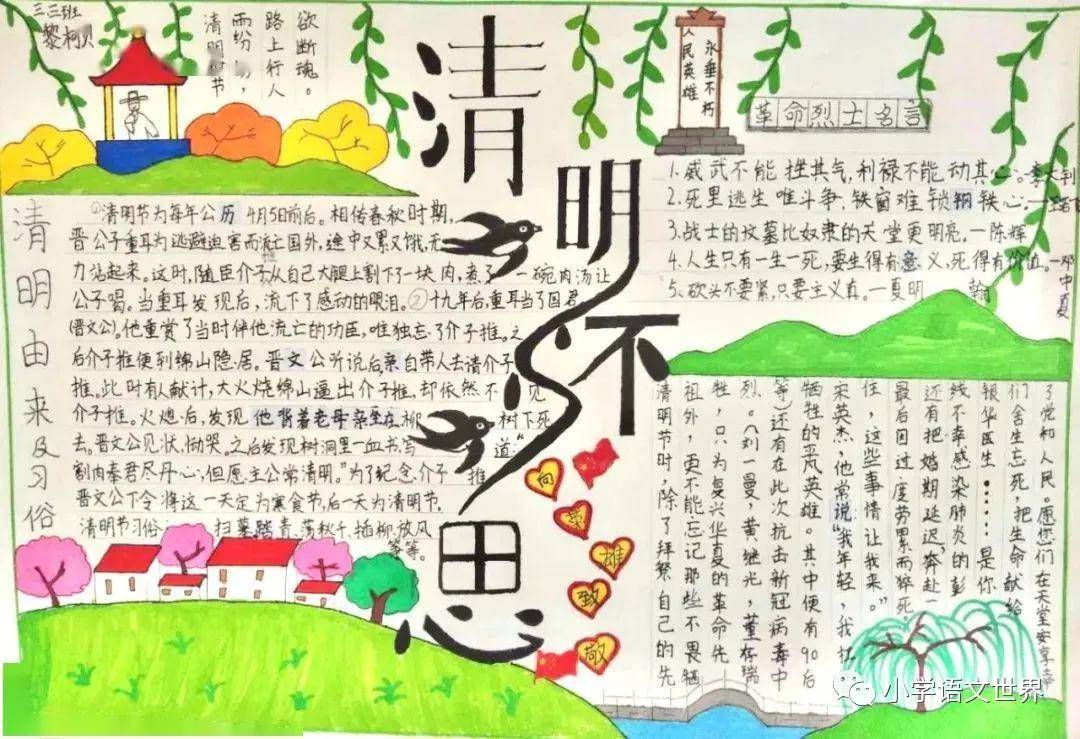 三三班
黎柯贝
清明时节
雨纷纷，
路上行人
欲断魂。
清明怀思
永垂不朽
人民英雄
革命烈士名言
1.威武不能挫其气,利禄不能动其心。李大钊
2.死里逃生唯斗争,铁窗难锁钢铁心.一王若
3.战士的坟墓比奴隶的天堂更明亮。一陈辉
4.人生只有一生一死,要生得有意义,死得有价值。一邓中夏
5、砍头不要紧,只要主义真。一夏明翰
清明由来及习俗
①清明节为每年公历4月5日前后。相传春秋时期,
晋公子重耳为逃避迫害而流亡国外,途中又累又饿,无
力站起来。这时,随臣介子推从自己大腿上割下了一块肉,煮了一碗肉汤让
公子喝。当重耳发现后,流下了感动的眼泪。②十九年后,重耳当了国君
(晋文公)。他重赏了当时伴他流亡的功臣,唯独忘了介子推。之
后介子推便到绵山隐居。晋文公听说后亲自带人去请介子
推。此时有人献计,大火烧绵山逼出介子推,却依然不见
介子推。火熄后,发现他背着老母亲坐在柳树下死
去。晋文公见状,恸哭。之后发现树洞里一血书,写道:“
割肉奉君尽丹心,但愿主公常清明。”为了纪念介子推
晋文公下令将这一天定为寒食节,后一天为清明节.
清明节习俗:扫墓踏青、荡秋千、插柳、放风
筝等。
向英雄致敬
清明节时,除了拜祭自己的先
祖外,更不能忘记那些不畏牺
牲,只为复兴华夏的革命先
烈。(刘一曼,黄继光,董存瑞
等)还有在此次抗击新冠病毒中
牺牲的平凡英雄。其中便有90后
宋英杰,他常说“我年轻,我扛
住,这些事情让我来。”
最后因过度劳累而猝死
还有把婚期延迟,奔赴一
线不幸感染肺炎的彭
银华医生……是你
们舍生忘死,把生命献给
了党和人民。愿您们在天堂安享幸
小学语文世界